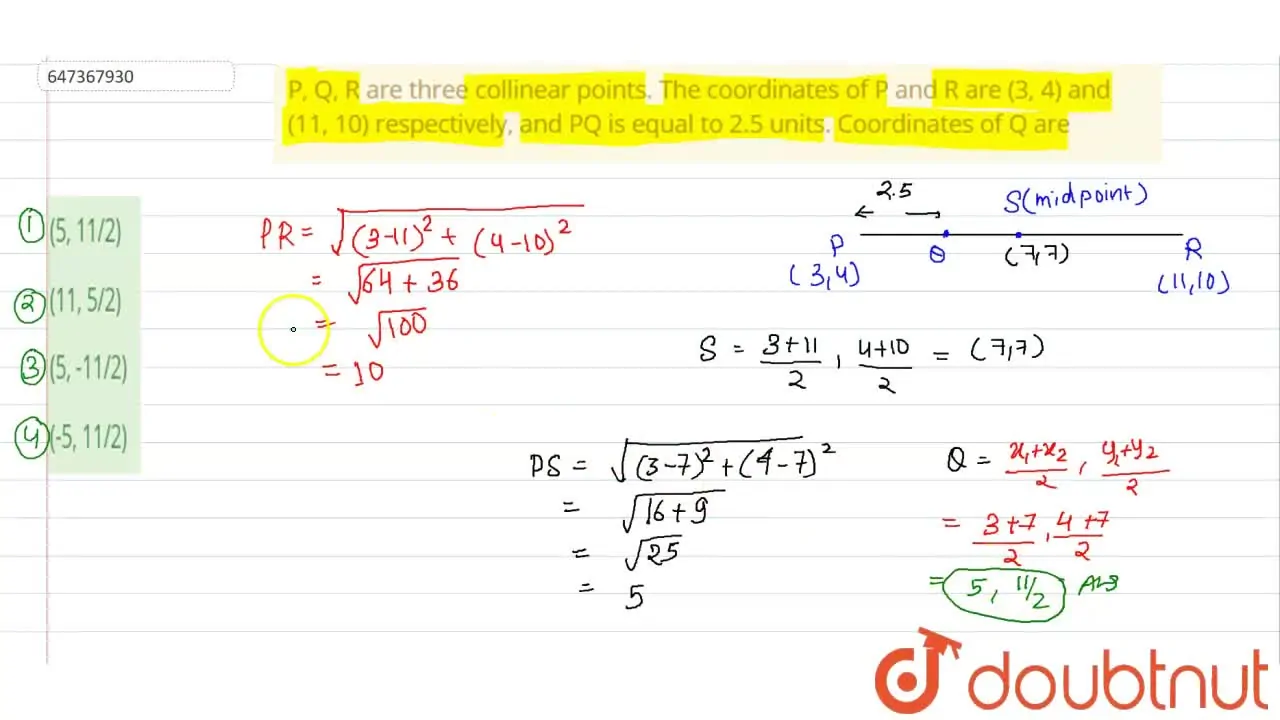 647367930
P, Q, R are three collinear points. The coordinates of P and R are (3, 4) and
(11, 10) respectively, and PQ is equal to 2.5 units. Coordinates of Q are
1 (5, 11/2)
2 (11, 5/2)
3 (5, -11/2)
4 (-5, 11/2)
PR = √(3-11)² + (4-10)²
= √64 + 36
= √100
= 10
2.5
S(midpoint)
P Q (7,7) R
(3,4) (11,10)
S = 3+11/2 , 4+10/2 = (7,7)
PS = √(3-7)² + (4-7)²
= √16+9
= √25
= 5
Q = x₁+x₂/2 , y₁+y₂/2
= 3+7/2 , 4+7/2
= 5, 11/2 Ans
doubtnut